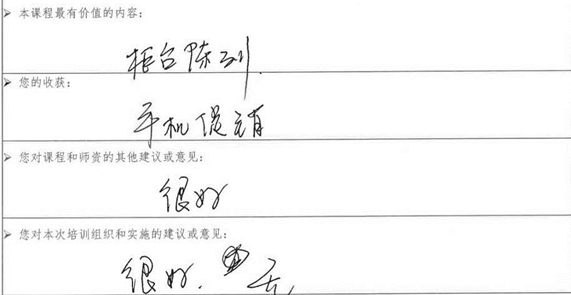 ➢ 本课程最有价值的内容:
柜台陈列.
➢ 您的收获:
手机促销
➢ 您对课程和师资的其他建议或意见:
很好
➢ 您对本次培训组织和实施的建议或意见:
很好. 无